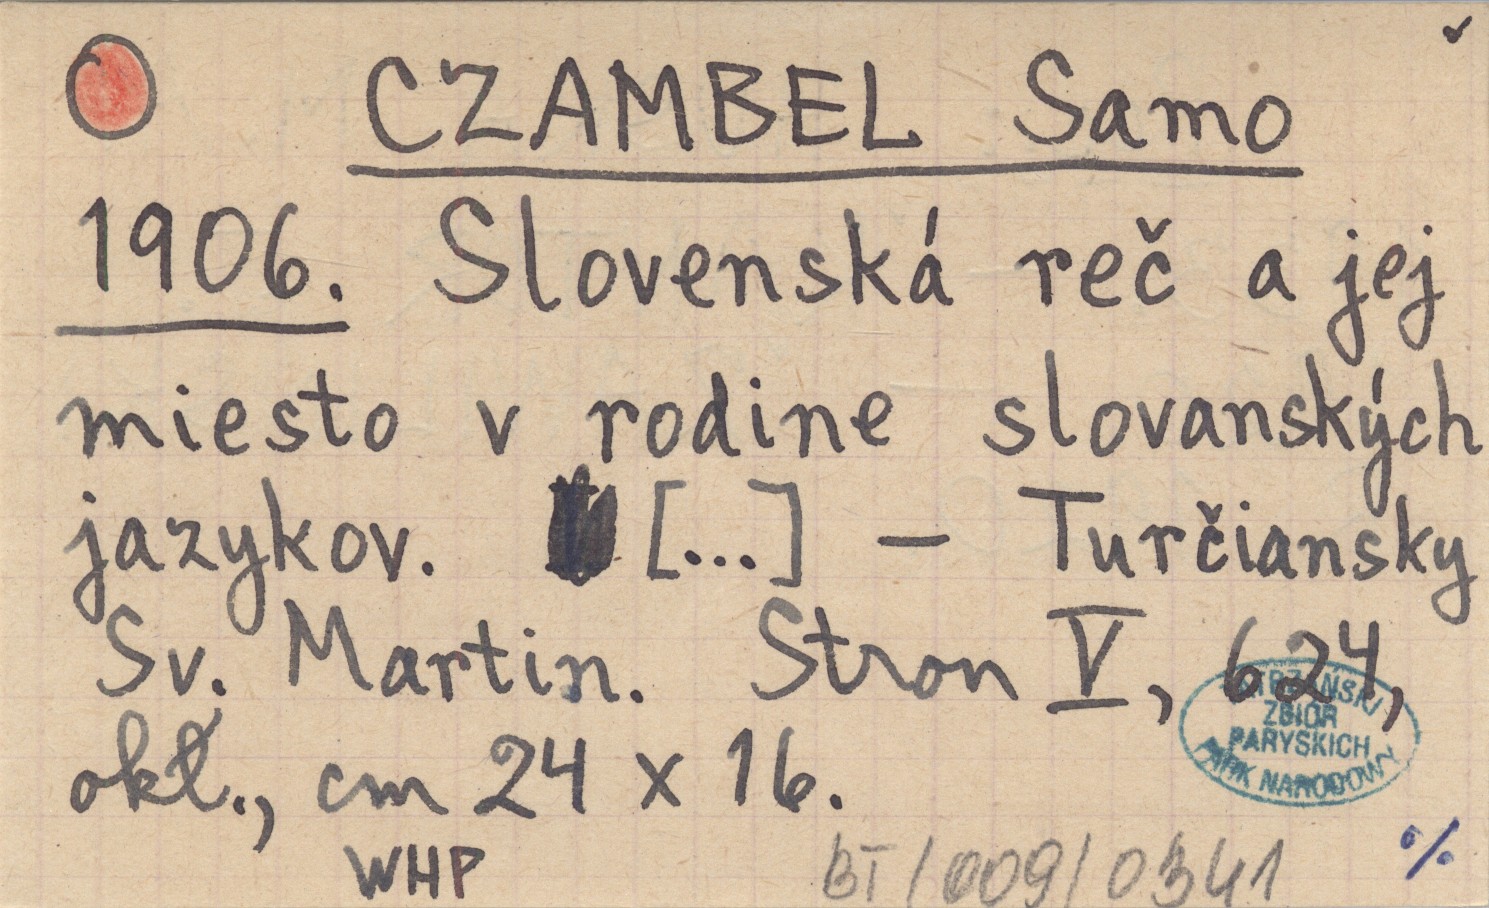 CZAMBEL Samo
1906. Slovenská reč a jej
miesto v rodine slovanských
jazykov. [...] – Turčiansky
Sv. Martin. Stron V, 624,
okł., cm 24 x 16.
TATRZAŃSKI
ZBIÓR
PARYSKICH
PARK NARODOWY
WHP
BT/009/0341
%